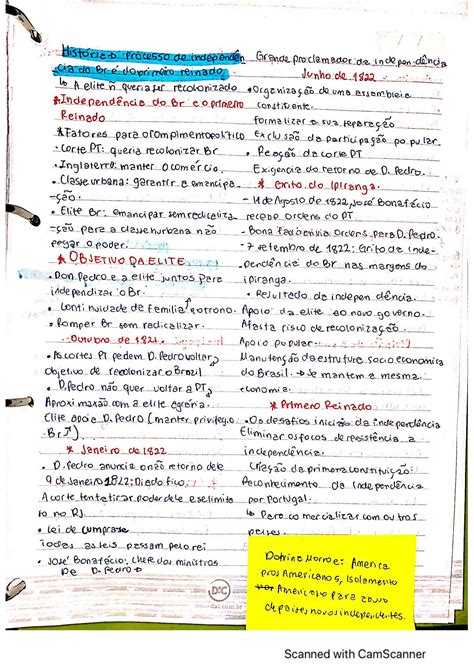 História: o processo de independên
cia do Br e do primeiro reinado
↳ A elite ñ queria ser recolonizado
*Independência do Br e o primeiro
Reinado
*Fatores para o rompimento político
• Corte PT: queria recolonizar Br.
• Inglaterra: manter o comércio.
• Classe urbana: garantir a emancipa-
ção.
• Elite Br: emancipar sem radicaliza
-ção para a classe urbana não
pegar o poder.
* OBJETIVO DA ELITE
• Don Pedro e a elite juntos para
independizar o Br.
• Continuidade de familia ao trono.
• Romper Br sem radicalizar.
• Outubro de 1821.
• As cortes PT pedem D. Pedro voltar,
objetivo de recolonizar o Brazil.
• D. Pedro não quer voltar a PT,
Aproximaxão com a elite agrária.
Elite apoia D. Pedro (manter privilégio
Br ↑).
* Janeiro de 1822
• D. Pedro anuncia o não retorno de
9 de Janeiro 1822; Dia do fico,
A corte tenta tirar poder dele e se limita
so no RJ.
• Lei de cumprase
Todas as leis passam pelo rei
• José Bonafácio, chefe dos ministros
De D. Pedro
Grande proclamador da independência
Junho de 1822
• Organização de uma assembleia
constituente.
formalizar a sua separação
Exclusão da participação popular.
• Reação da corte PT
Exigencia do retorno de D. Pedro.
* Grito do Ipiranga.
- 14 Agosto de 1822, José Bonafácio
recebe ordens do PT.
- 7 setembro de 1822: Grito da Inde-
pendência do Br nas margens do
ipiranga.
• Resultado da independência.
Apoio da elite ao novo governo.
Afasta risco de recolonização.
Apoio popular.
Manutenção da estrutura socio economica
do Brasil. → Se mantem a mesma
economia.
* Primeiro Reinado
• Os desafios inicião da independência
Eliminar os focos de resistência a
independência.
Criação da primera constituição:
Reconhecimento da Independência
por Portugal.
↳ Para comercializar com outros
paises.
Dotrina Monroe: America
pros Americanos, Isolamento
Americano para
de paises novos independentes.
DAC
www.dac.com.br
Scanned with CamScanner